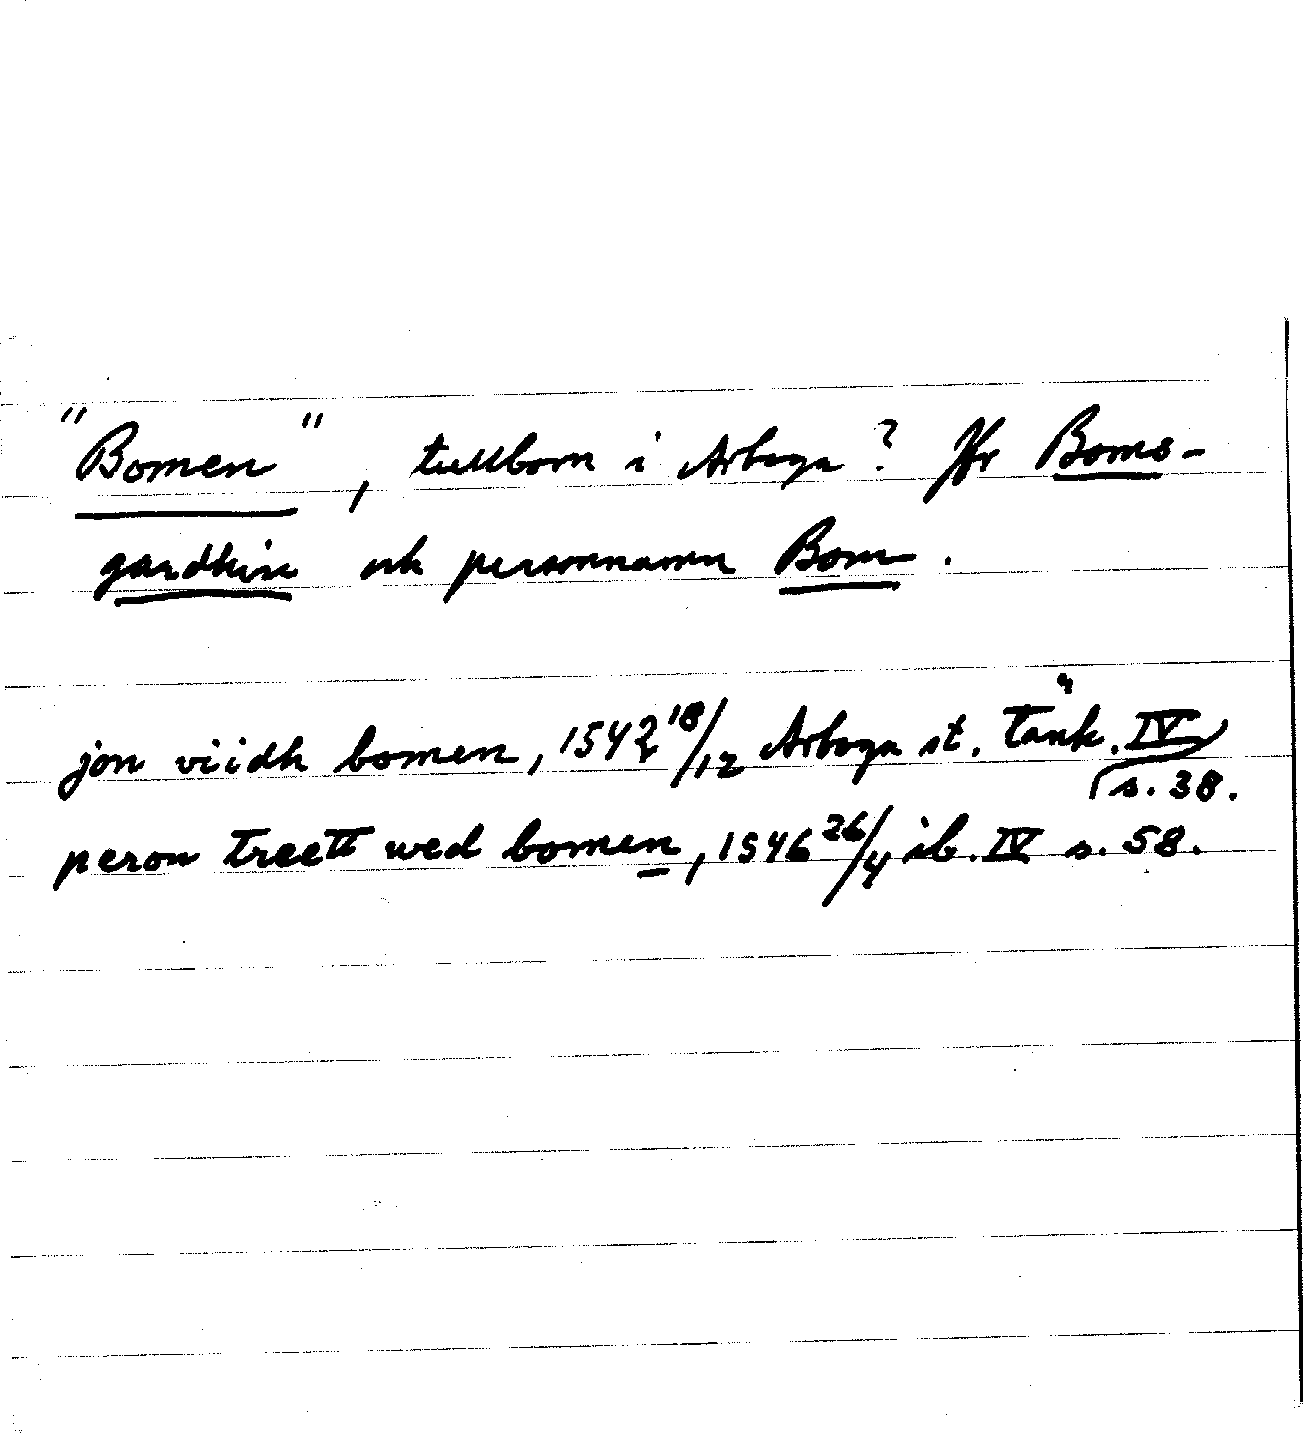 "Bomen", tullbom i Arboga? Jfr Boms-
gardhin och personnamn Bom.
jon viidh bomen, 1542 18/12 Arboga st. tänk. IV
s. 38.
peron treett wed bomen, 1546 26/4 ib. IV s. 58.